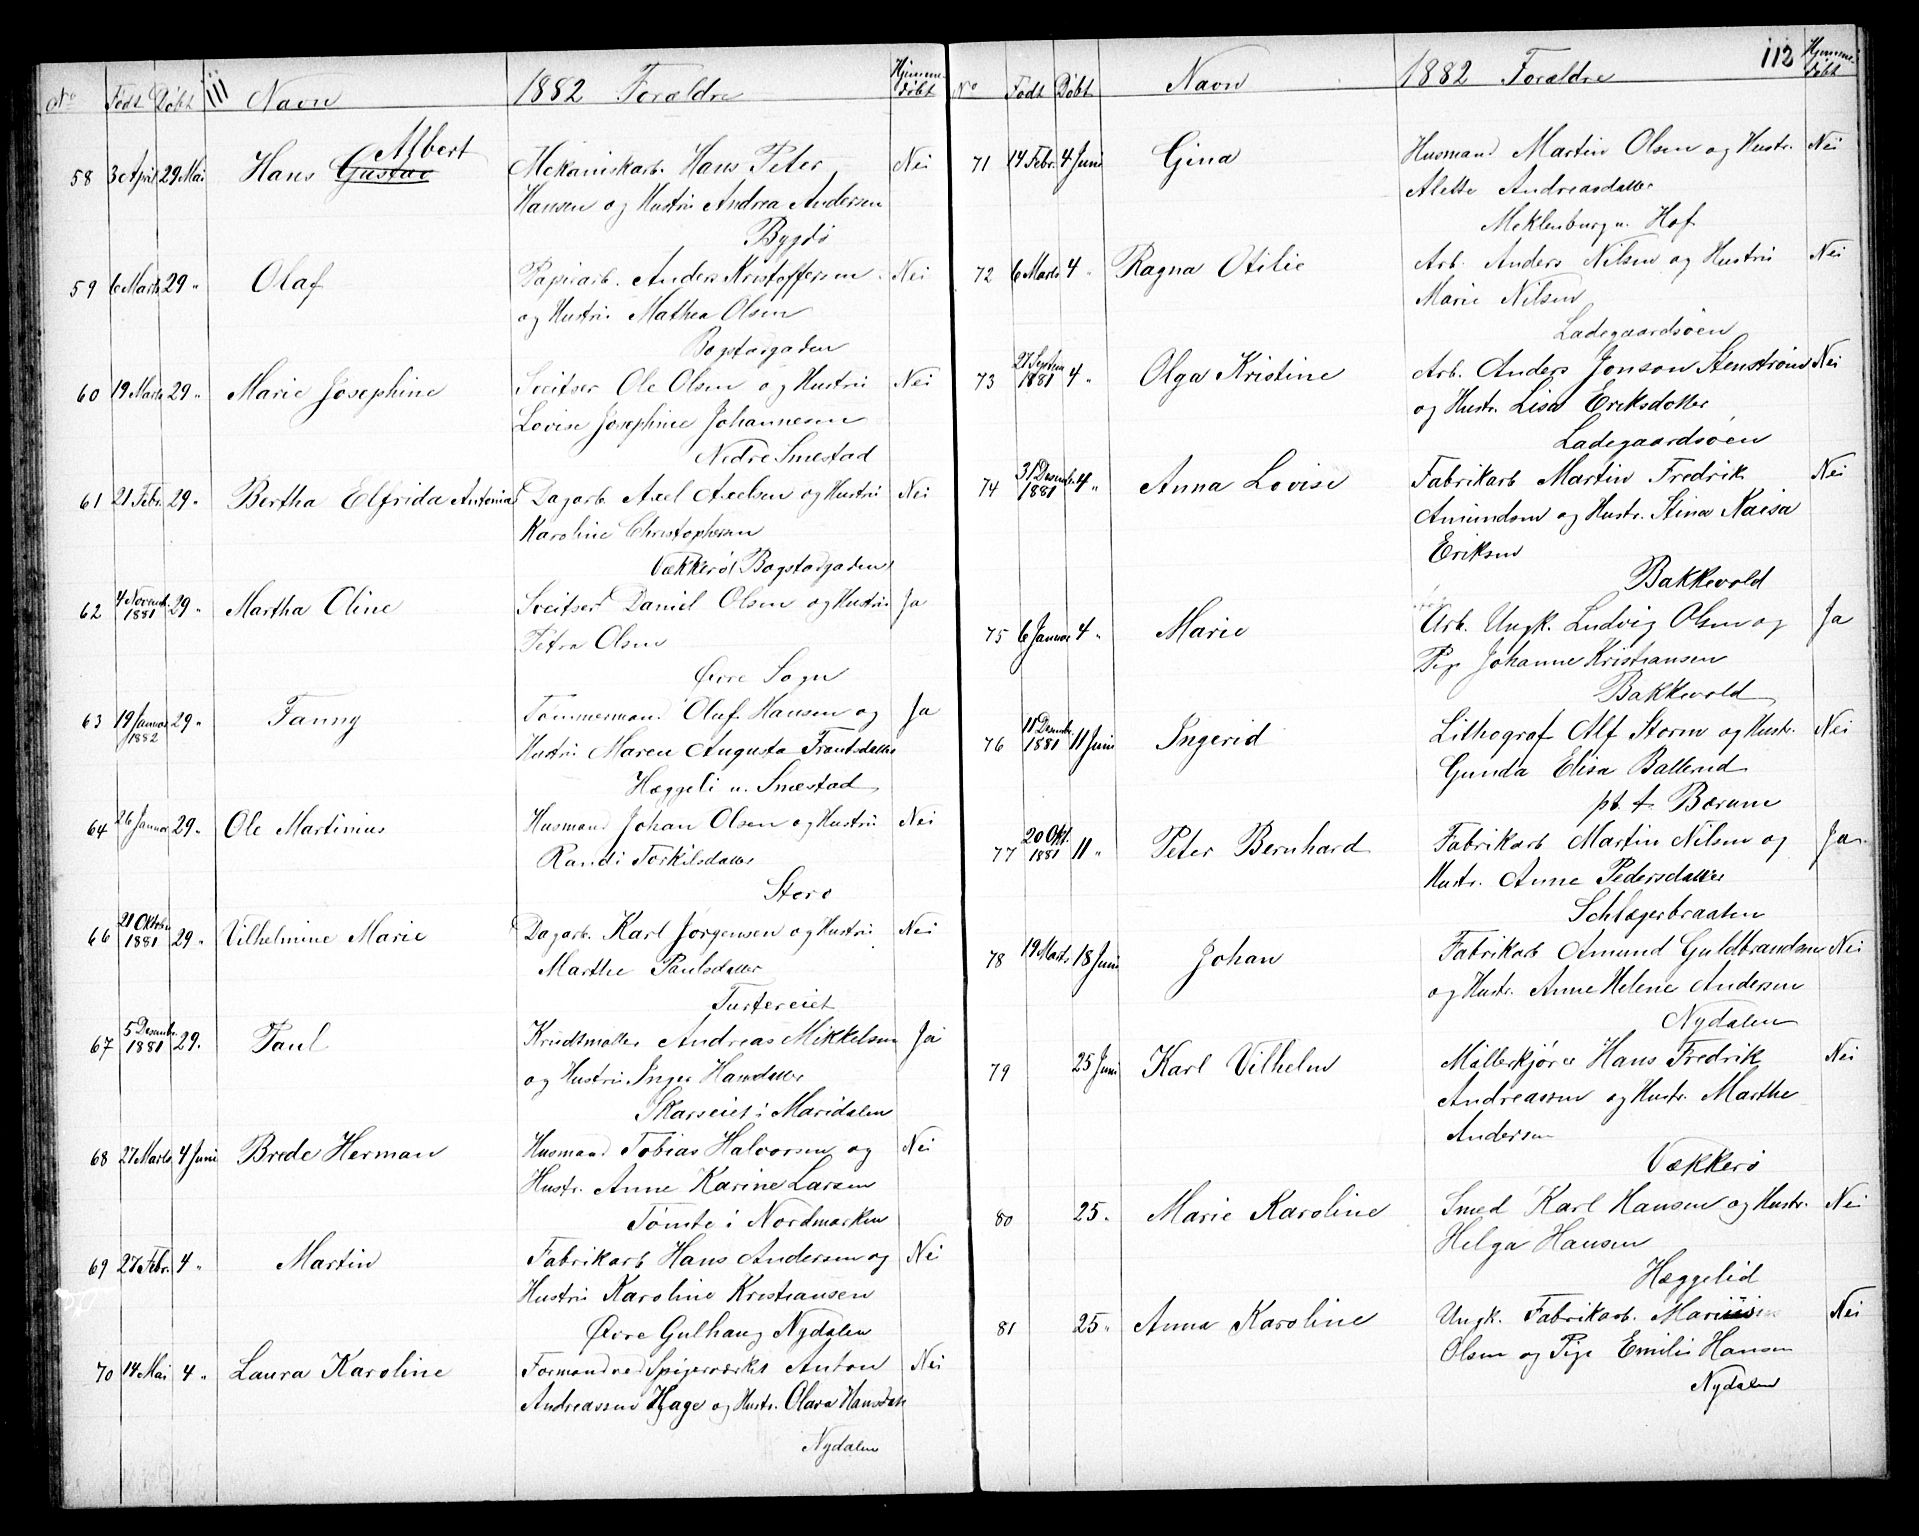 No Födt Döbt 111 Navn 1882 Forældre Hjemme-
döbt
58 3 April 29 Mai Hans Gustav Albert Mekaniskarb. Hans Peter Nei
Hansen og Hustru Andrea Andersen
Bygdö
59 6 Marts 29 " Olaf Papirarb. Anders Kristoffersen Nei
og Hustru Mathea Olsen
Bogstadgaden
60 19 Marts 29 " Marie Josephine Sveitser Ole Olsen og Hustru Nei
Lovise Josephine Johannesen
Nedre Smestad
61 21 Febr. 29 " Bertha Elfrida Antonia Dagarb. Axel Axelsen og Hustru Nei
Karoline Christophersen
Vækkerö Bogstadgaden
62 4 Novemb. 1881 29 " Martha Oline Sveitser Daniel Olsen og Hustru Ja
Petra Olsen
Övre Sogn
63 19 Januar 1882 29 " Fanny Tömmermand Oluf Hansen og Ja
Hustru Maren Augusta Frantsdatter
Hæggeli u. Smestad
64 26 Januar 29 " Ole Martinius Husmand Johan Olsen og Hustru Nei
Randi Torkilsdatter
Storo
66 21 Oktober 1881 29 " Vilhelmine Marie Dagarb. Karl Jörgensen og Hustru Nei
Marthe Paulsdatter
Turtereiet
67 5 Desember 1881 29. Paul Krudtmøller Andreas Mikkelsen Ja
og Hustru Inger Hansdatter
Skarseiet i Maridalen
68 27 Marts 4 Juni Brede Herman Husmand Tobias Halvorsen og Nei
Hustr. Anne Karine Larsen
Tömte i Nordmarken
69 27 Febr. 4 " Martin Fabrikarb Hans Andersen og Nei
Hustru Karoline Kristiansen
Övre Gulhaug Nydalen
70 14 Mai 4 " Laura Karoline Formand ved Spigerværket Anton Nei
Andreassen Hage og Hustr. Olava Hansdatt
Nydalen
No Födt Döbt Navn 1882 Forældre 112 Hjemme-
döbt
71 14 Febr. 4 Juni Gina Husmand Martin Olsen og Hustr. Nei
Alette Andreasdatter
Meklenburg u. Hof
72 6 Marts 4 " Ragna Otilie Arb. Anders Nilsen og Hustru Nei
Marie Nilsen
Ladegaardsöen
73 27 Septem 1881 4 " Olga Kristine Arb. Anders Jonson Stenström Nei
og Hustr. Lisa Eriksdatter
Ladegaardsöen
74 31 Desemb. 1881 4 " Anna Lovise Fabrikarb Martin Fredrik Nei
Amundsen og Hustr. Stina Kaisa
Eriksen
Bakkevold
75 6 Januar 4 " Marie Arb. Ungk. Ludvig Olsen og Ja
Pige Johanne Kristiansen
Bakkevold
76 11 Desembr. 1881 11 Juni Ingerid Lithograf Alf Storm og Hustr. Nei
Gunda Elisa Ballerud
pt. f. Bærum
77 20 Okt. 1881 11 " Peter Bernhard Fabrikarb Martin Nilsen og Ja
Hustr. Anne Pedersdatter
Schlægerbraaten
78 19 Marts 18 Juni Johan Fabrikarb Amund Guldbrandsen Nei
og Hustr. Anne Helene Andersen
Nydalen
79 25 Juni Karl Vilhelm Möllerkjörer Hans Fredrik Nei
Andreassen og Hustr. Marthe
Andersen
Vækkerö
80 25. Marie Karoline Smed Karl Hansen og Hustr. Nei
Helga Hansen
Hæggelid
81 25 " Anna Karoline Ungk. Fabrikarb. Marius Nei
Olsen og Pige Emilie Hansen
Nydalen